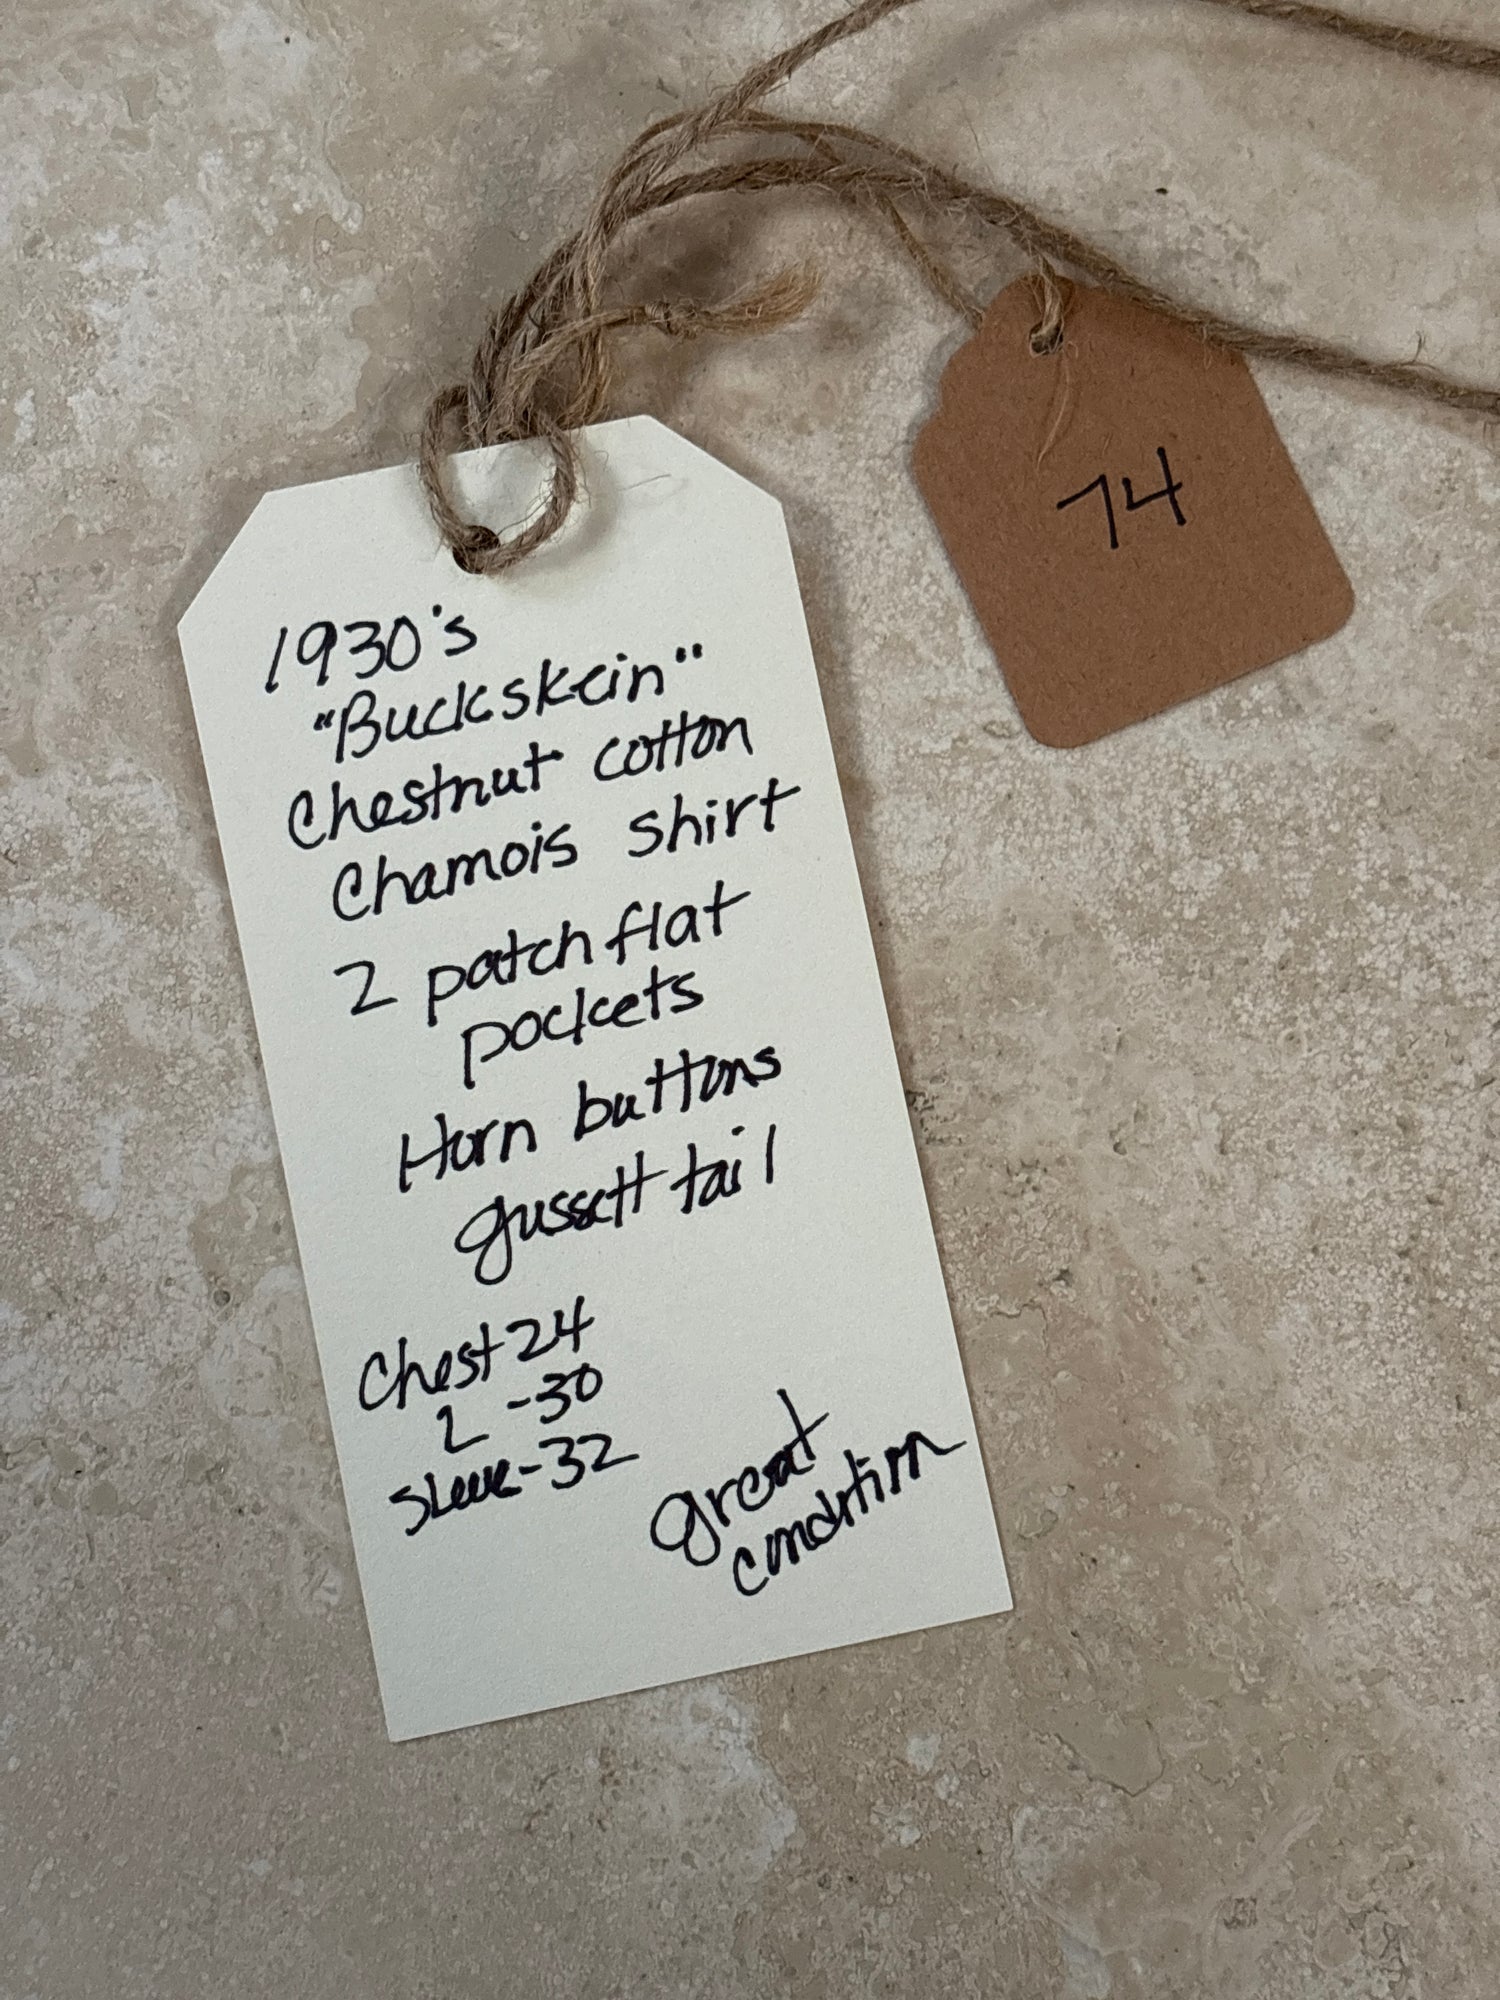 1930's
"Buckskein"
Chestnut cotton
Chamois shirt
2 patch flat
pockets
Horn buttons
gussett tail
Chest 24
L - 30
Sleeve - 32
great
condition
74